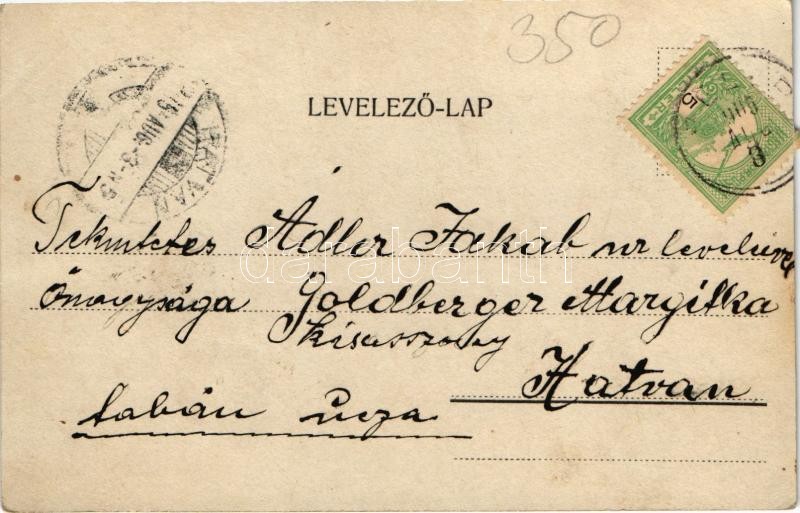 350
LEVELEZŐ-LAP
HATVAN
15 AUG
5
Tekintetes Adler Jakab ur levelével
Őnagysága Goldberger Margitka
kisasszony
Hatvan
tabán ucza
darabanth